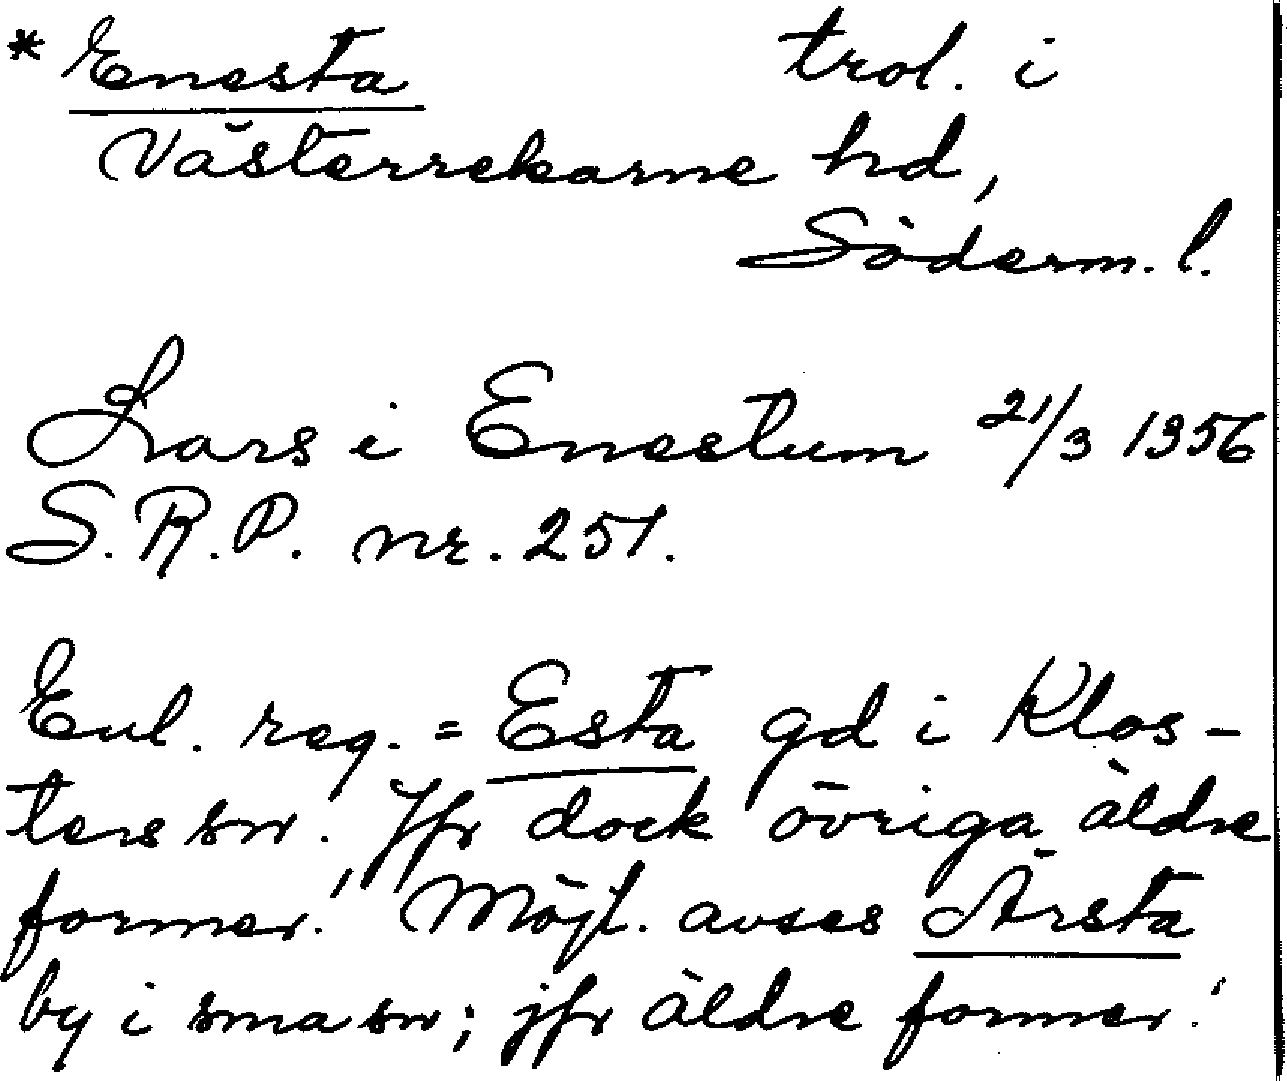 * Enesta trol. i
Västerrekarne hd,
Söderm. l.
Lars i Enestum 21/3 1356
S.R.P. nr. 251.
Enl. reg. = Esta gd i Klos-
ters sn. Jfr dock övriga äldre
former! Möjl. avses Ärsta
by i sma sn; jfr äldre former!